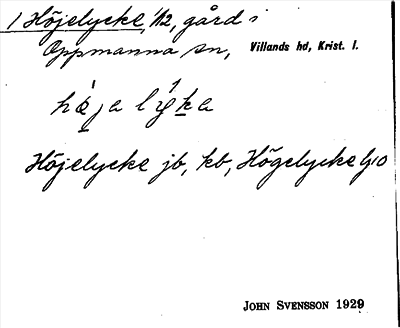 1 Höjelycke, 1/2, gård i
Oppmanna sn, Villands hd, Krist. l.
Höjelycke jb, kb, Högelycke G10
JOHN SVENSSON 1929